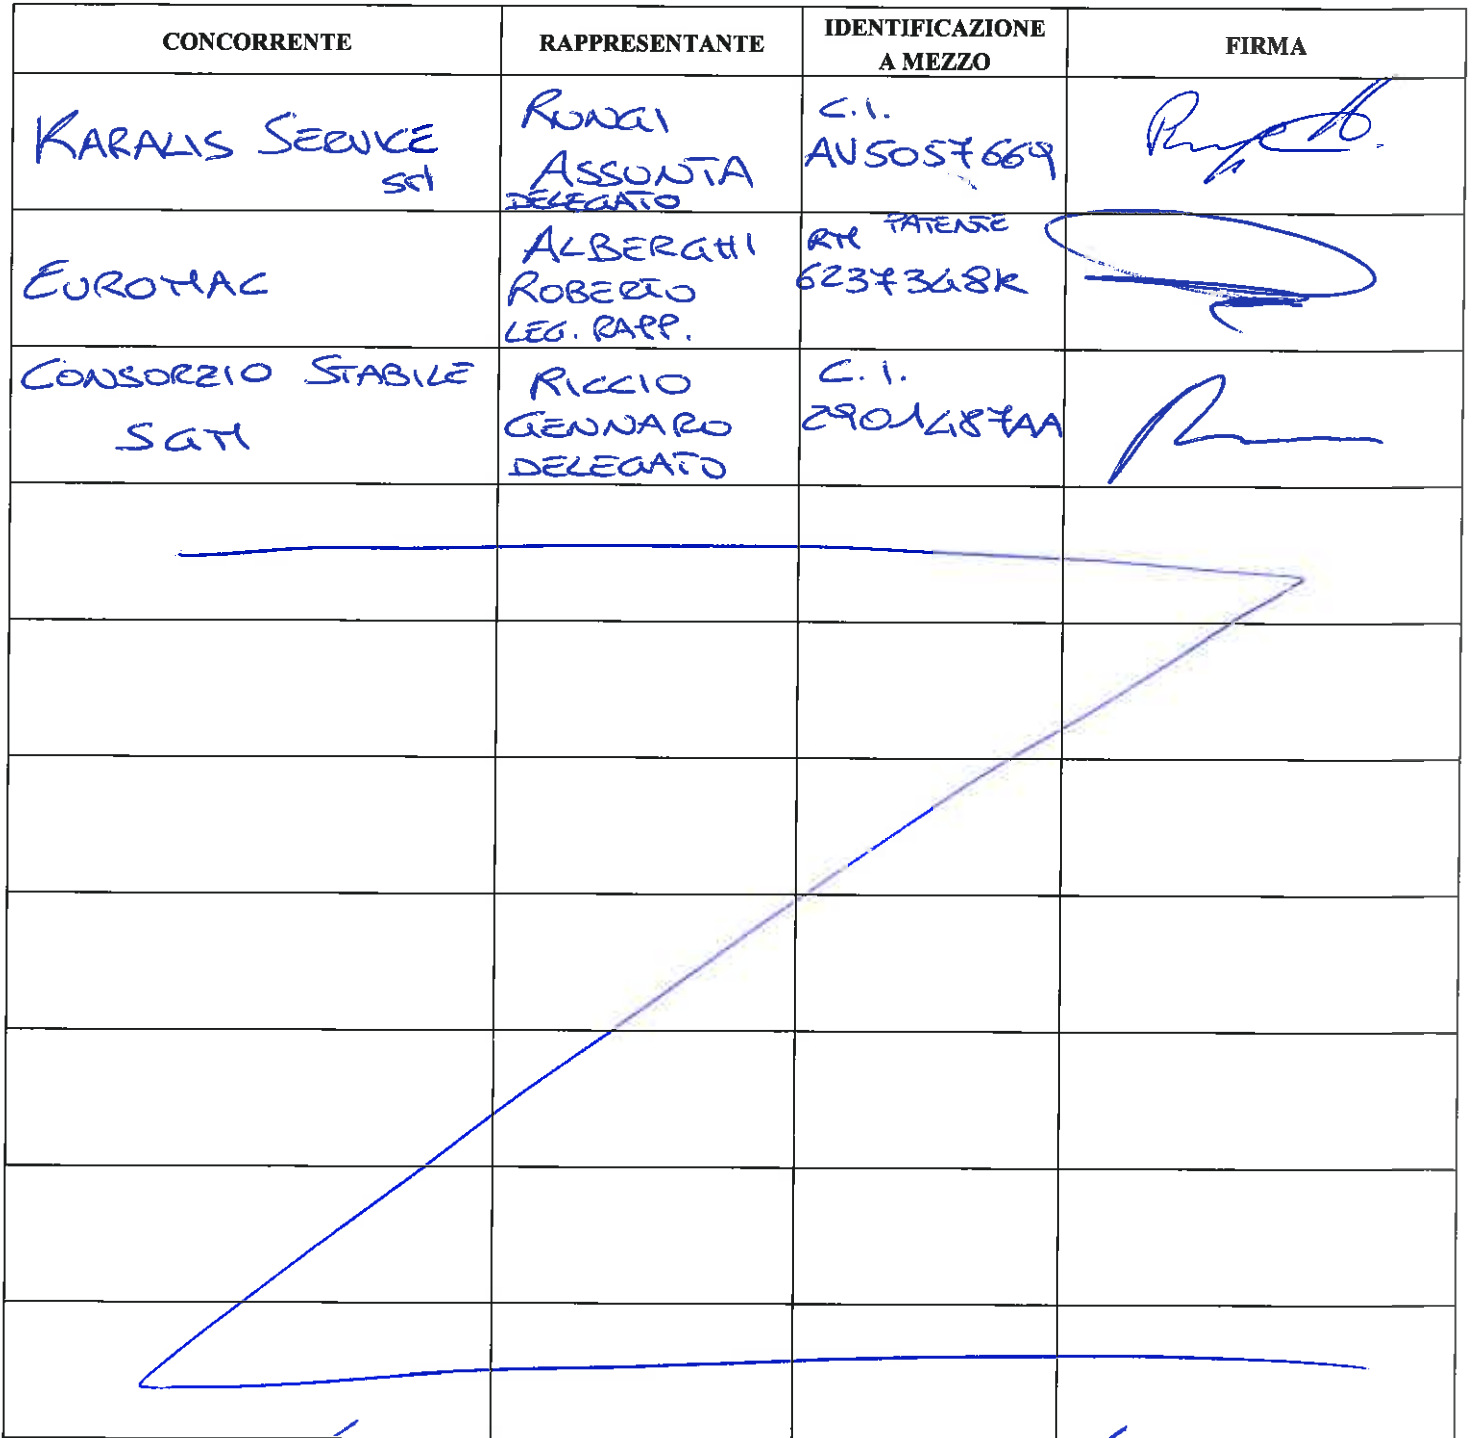 CONCORRENTE RAPPRESENTANTE IDENTIFICAZIONE A MEZZO FIRMA
KARALIS SERVICE
srl
RUNGI
ASSUNTA
DELEGATO
C.I.
AV5057669
EUROMAC
ALBERGHI
ROBERTO
LEG. RAPP.
RM PATENTE
6237348K
CONSORZIO STABILE
SGM
RICCIO
GENNARO
DELEGATO
C.I.
2901487AA